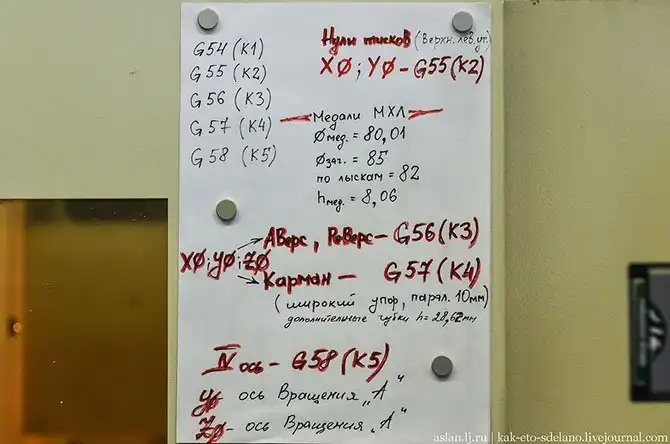 G54 (K1)
G55 (K2)
G56 (K3)
G57 (K4)
G58 (K5)
Нули тисков (Верхн. лев. уг.)
XØ; YØ - G55 (K2)
Медали МХЛ
Ømед. = 80,01
Øзаг. = 85
по лыскам = 82
hмед. = 8,06
XØ; YØ; ZØ
Аверс, Реверс - G56 (K3)
Карман - G57 (K4)
(широкий упор, парал. 10мм)
дополнительные губки h = 28,62мм
IV ось - G58 (K5)
YØ ось Вращения „А“
ZØ - ось Вращения „А“
aslan.lj.ru | kak-eto-sdelano.livejournal.com